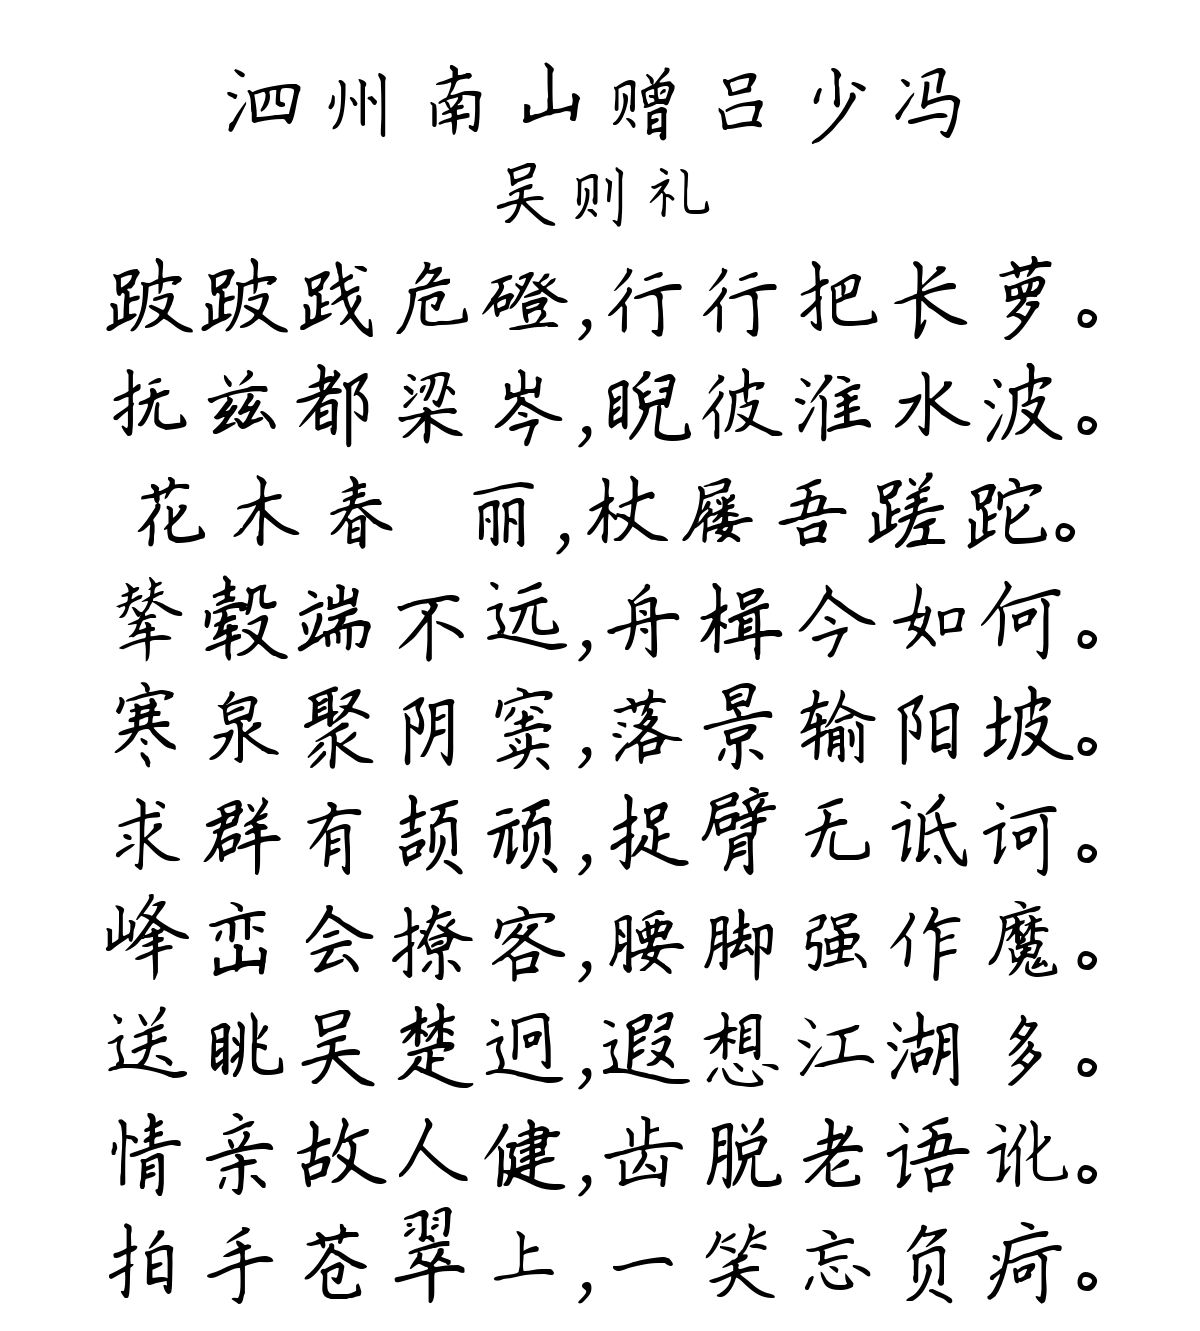 泗州南山赠吕少冯
吴则礼
跛跛践危磴,行行把长萝。
抚兹都梁岑,睨彼淮水波。
花木春 丽,杖屦吾蹉跎。
辇毂端不远,舟楫今如何。
寒泉聚阴窦,落景输阳坡。
求群有颉顽,捉臂无诋诃。
峰峦会撩客,腰脚强作魔。
送眺吴楚迥,遐想江湖多。
情亲故人健,齿脱老语讹。
拍手苍翠上,一笑忘负疴。